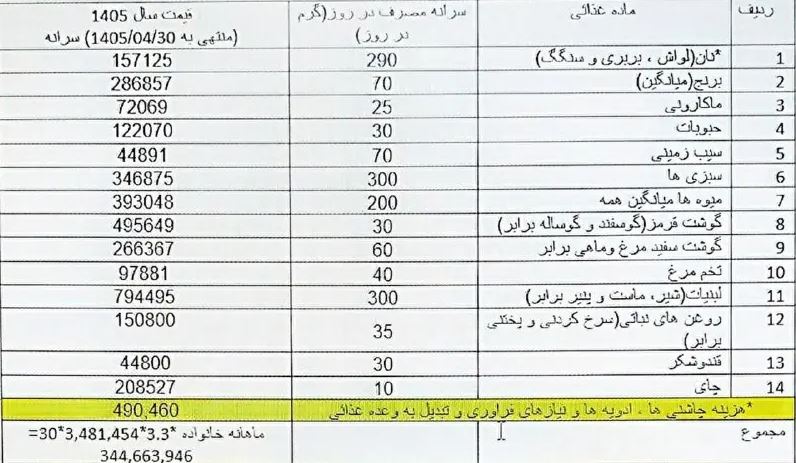 ردیف	ماده غذائی	سرانه مصرف در روز(گرم در روز)	قیمت سال 1405 (منتهی به 1405/04/30) سرانه
1	*نان(لواش ، بربری و سنگگ)	290	157125
2	برنج(میانگین)	70	286857
3	ماکارونی	25	72069
4	حبوبات	30	122070
5	سیب زمینی	70	44891
6	سبزی ها	300	346875
7	میوه ها میانگین همه	200	393048
8	گوشت قرمز(گوسفند و گوساله برابر)	30	495649
9	گوشت سفید مرغ وماهی برابر	60	266367
10	تخم مرغ	40	97881
11	لبنیات(شیر، ماست و پنیر برابر)	300	794495
12	روغن های نباتی(سرخ کردنی و پختنی برابر)	35	150800
13	قندوشکر	30	44800
14	چای	10	208527
*هزینه چاشنی ها ، ادویه ها و نیازهای فراوری و تبدیل به وعده غذائی	490,460
مجموع	ماهانه خانواده *3.3*3,481,454*30=
344,663,946